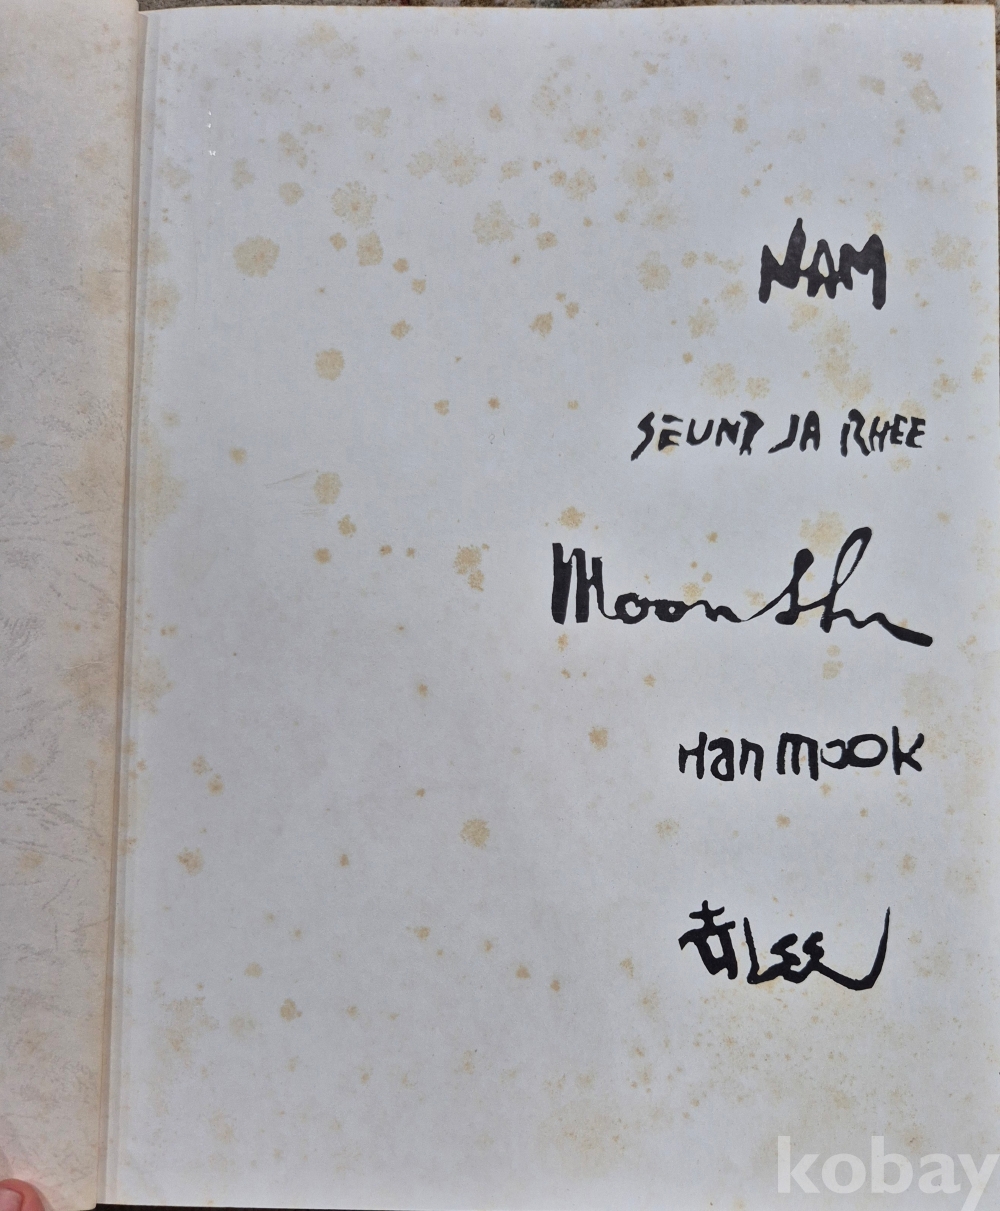 NAM
SEUND JA RHEE
Moon Shin
Han mook
LEE
kobay